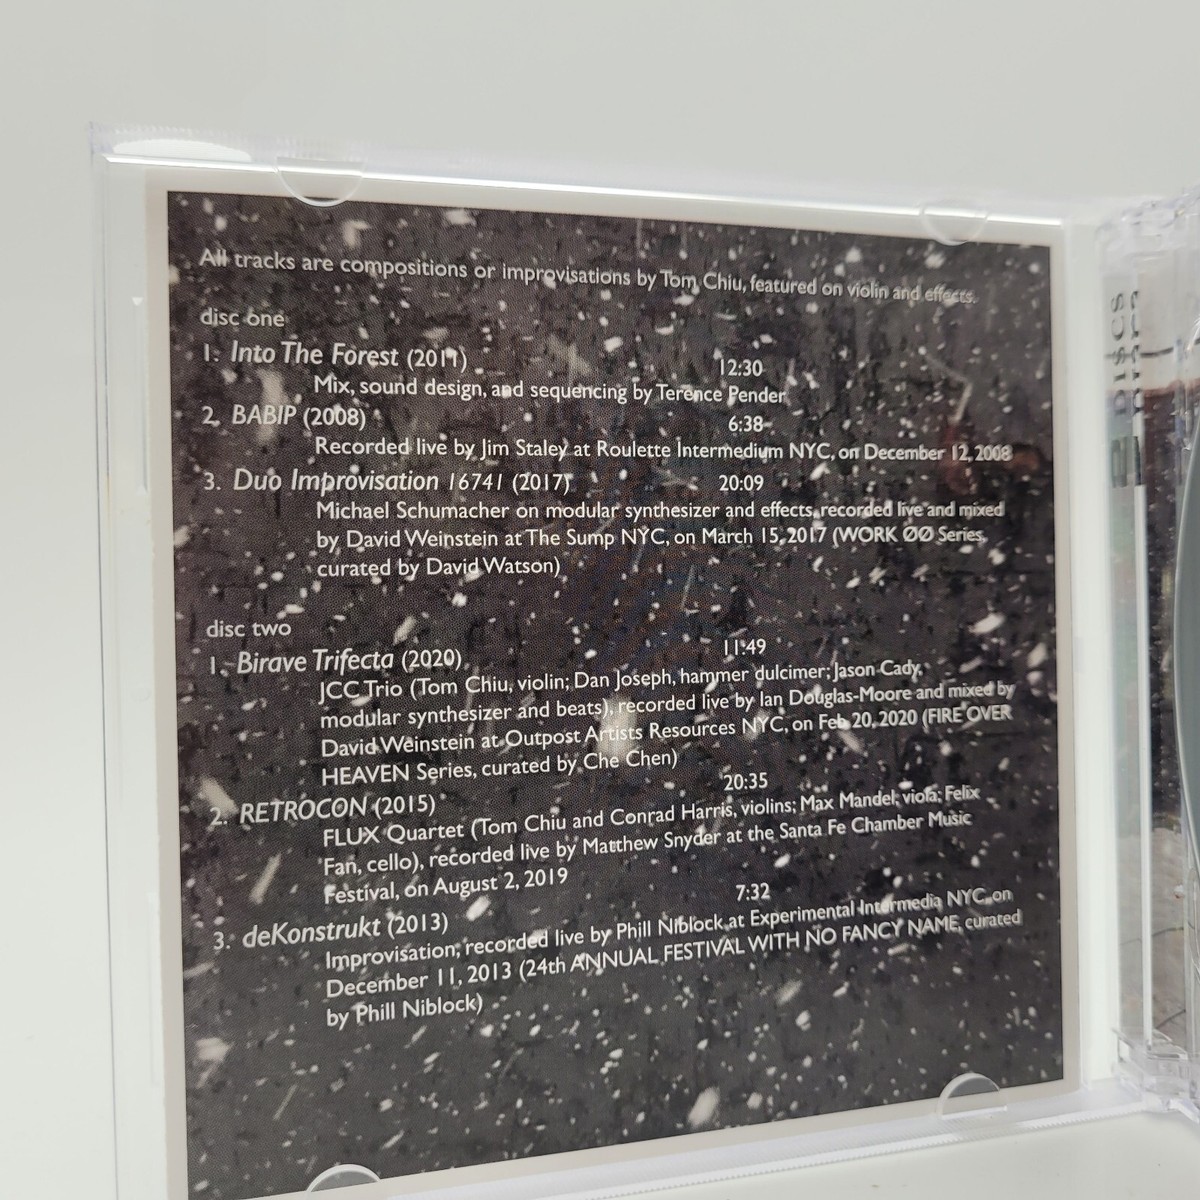 All tracks are compositions or improvisations by Tom Chiu, featured on violin and effects.
disc one
1. Into The Forest (2011) 12:30
Mix, sound design, and sequencing by Terence Pender
2. BABIP (2008) 6:38
Recorded live by Jim Staley at Roulette Intermedium NYC, on December 12, 2008
3. Duo Improvisation 16741 (2017) 20:09
Michael Schumacher on modular synthesizer and effects, recorded live and mixed
by David Weinstein at The Sump NYC, on March 15, 2017 (WORK ØØ Series,
curated by David Watson)
disc two
1. Birave Trifecta (2020) 11:49
JCC Trio (Tom Chiu, violin; Dan Joseph, hammer dulcimer; Jason Cady,
modular synthesizer and beats), recorded live by Ian Douglas-Moore and mixed by
David Weinstein at Outpost Artists Resources NYC, on Feb 20, 2020 (FIRE OVER
HEAVEN Series, curated by Che Chen)
2. RETROCON (2015) 20:35
FLUX Quartet (Tom Chiu and Conrad Harris, violins; Max Mandel, viola; Felix
Fan, cello), recorded live by Matthew Snyder at the Santa Fe Chamber Music
Festival, on August 2, 2019
3. deKonstrukt (2013) 7:32
Improvisation, recorded live by Phill Niblock at Experimental Intermedia NYC, on
December 11, 2013 (24th ANNUAL FESTIVAL WITH NO FANCY NAME, curated
by Phill Niblock)
DISCS